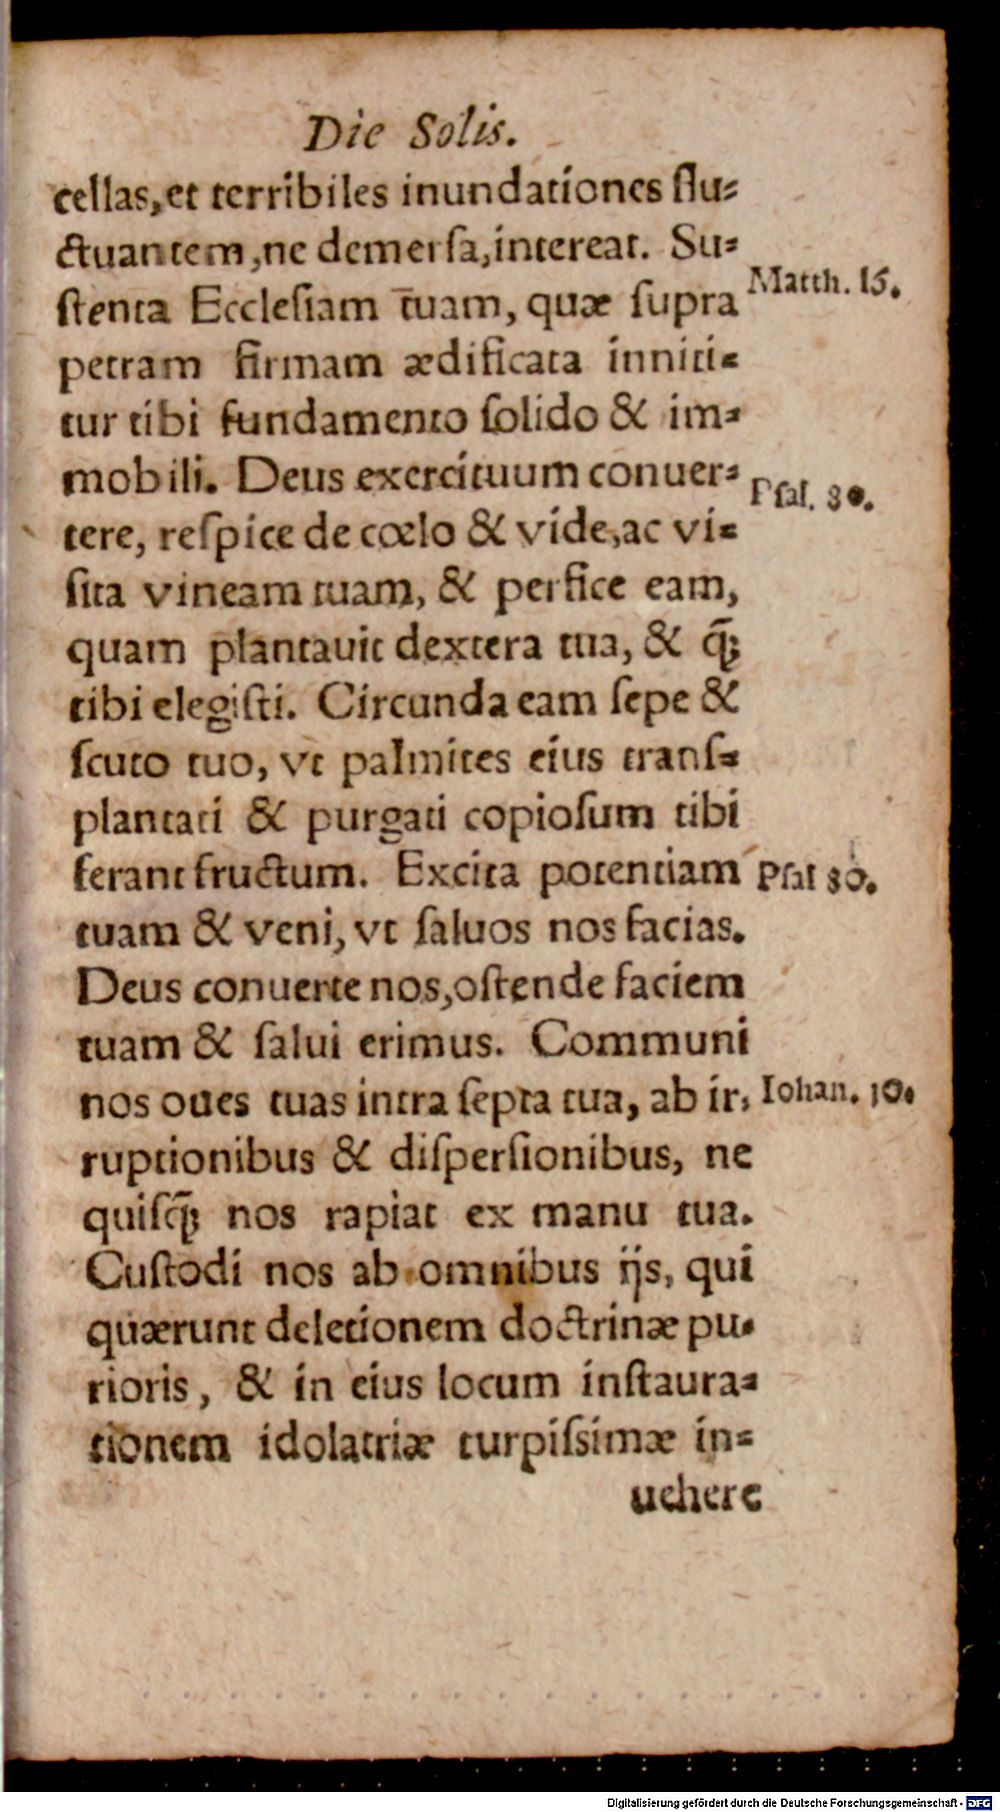 Die Solis.
cellas, et terribiles inundationes flu⸗
ctuantem, ne demersa, intereat. Su⸗
ſtenta Eccleſiam tuam, quæ ſupra
Matth. 15.
petram firmam ædificata inniti⸗
tur tibi fundamento ſolido & im⸗
mobili. Deus exercituum conuer⸗
Pſal. 80.
tere, reſpice de cœlo & vide, ac vi⸗
ſita vineam tuam, & perfice eam,
quam plantauit dextera tua, & q̃;
tibi elegiſti. Circunda eam ſepe &
ſcuto tuo, vt palmites eius tranſ⸗
plantati & purgati copioſum tibi
ferant fructum. Excita potentiam
Pſal 80.
tuam & veni, vt ſaluos nos facias.
Deus conuerte nos, oſtende faciem
tuam & ſalui erimus. Communi
nos oues tuas intra ſepta tua, ab ir⸗
Iohan. 10.
ruptionibus & diſperſionibus, ne
quiſq̃; nos rapiat ex manu tua.
Cuſtodi nos ab omnibus ijs, qui
quærunt deletionem doctrinæ pu⸗
rioris, & in eius locum inſtaura⸗
tionem idolatriæ turpiſsimæ in⸗
uehere
Digitalisierung gefördert durch die Deutsche Forschungsgemeinschaft - DFG